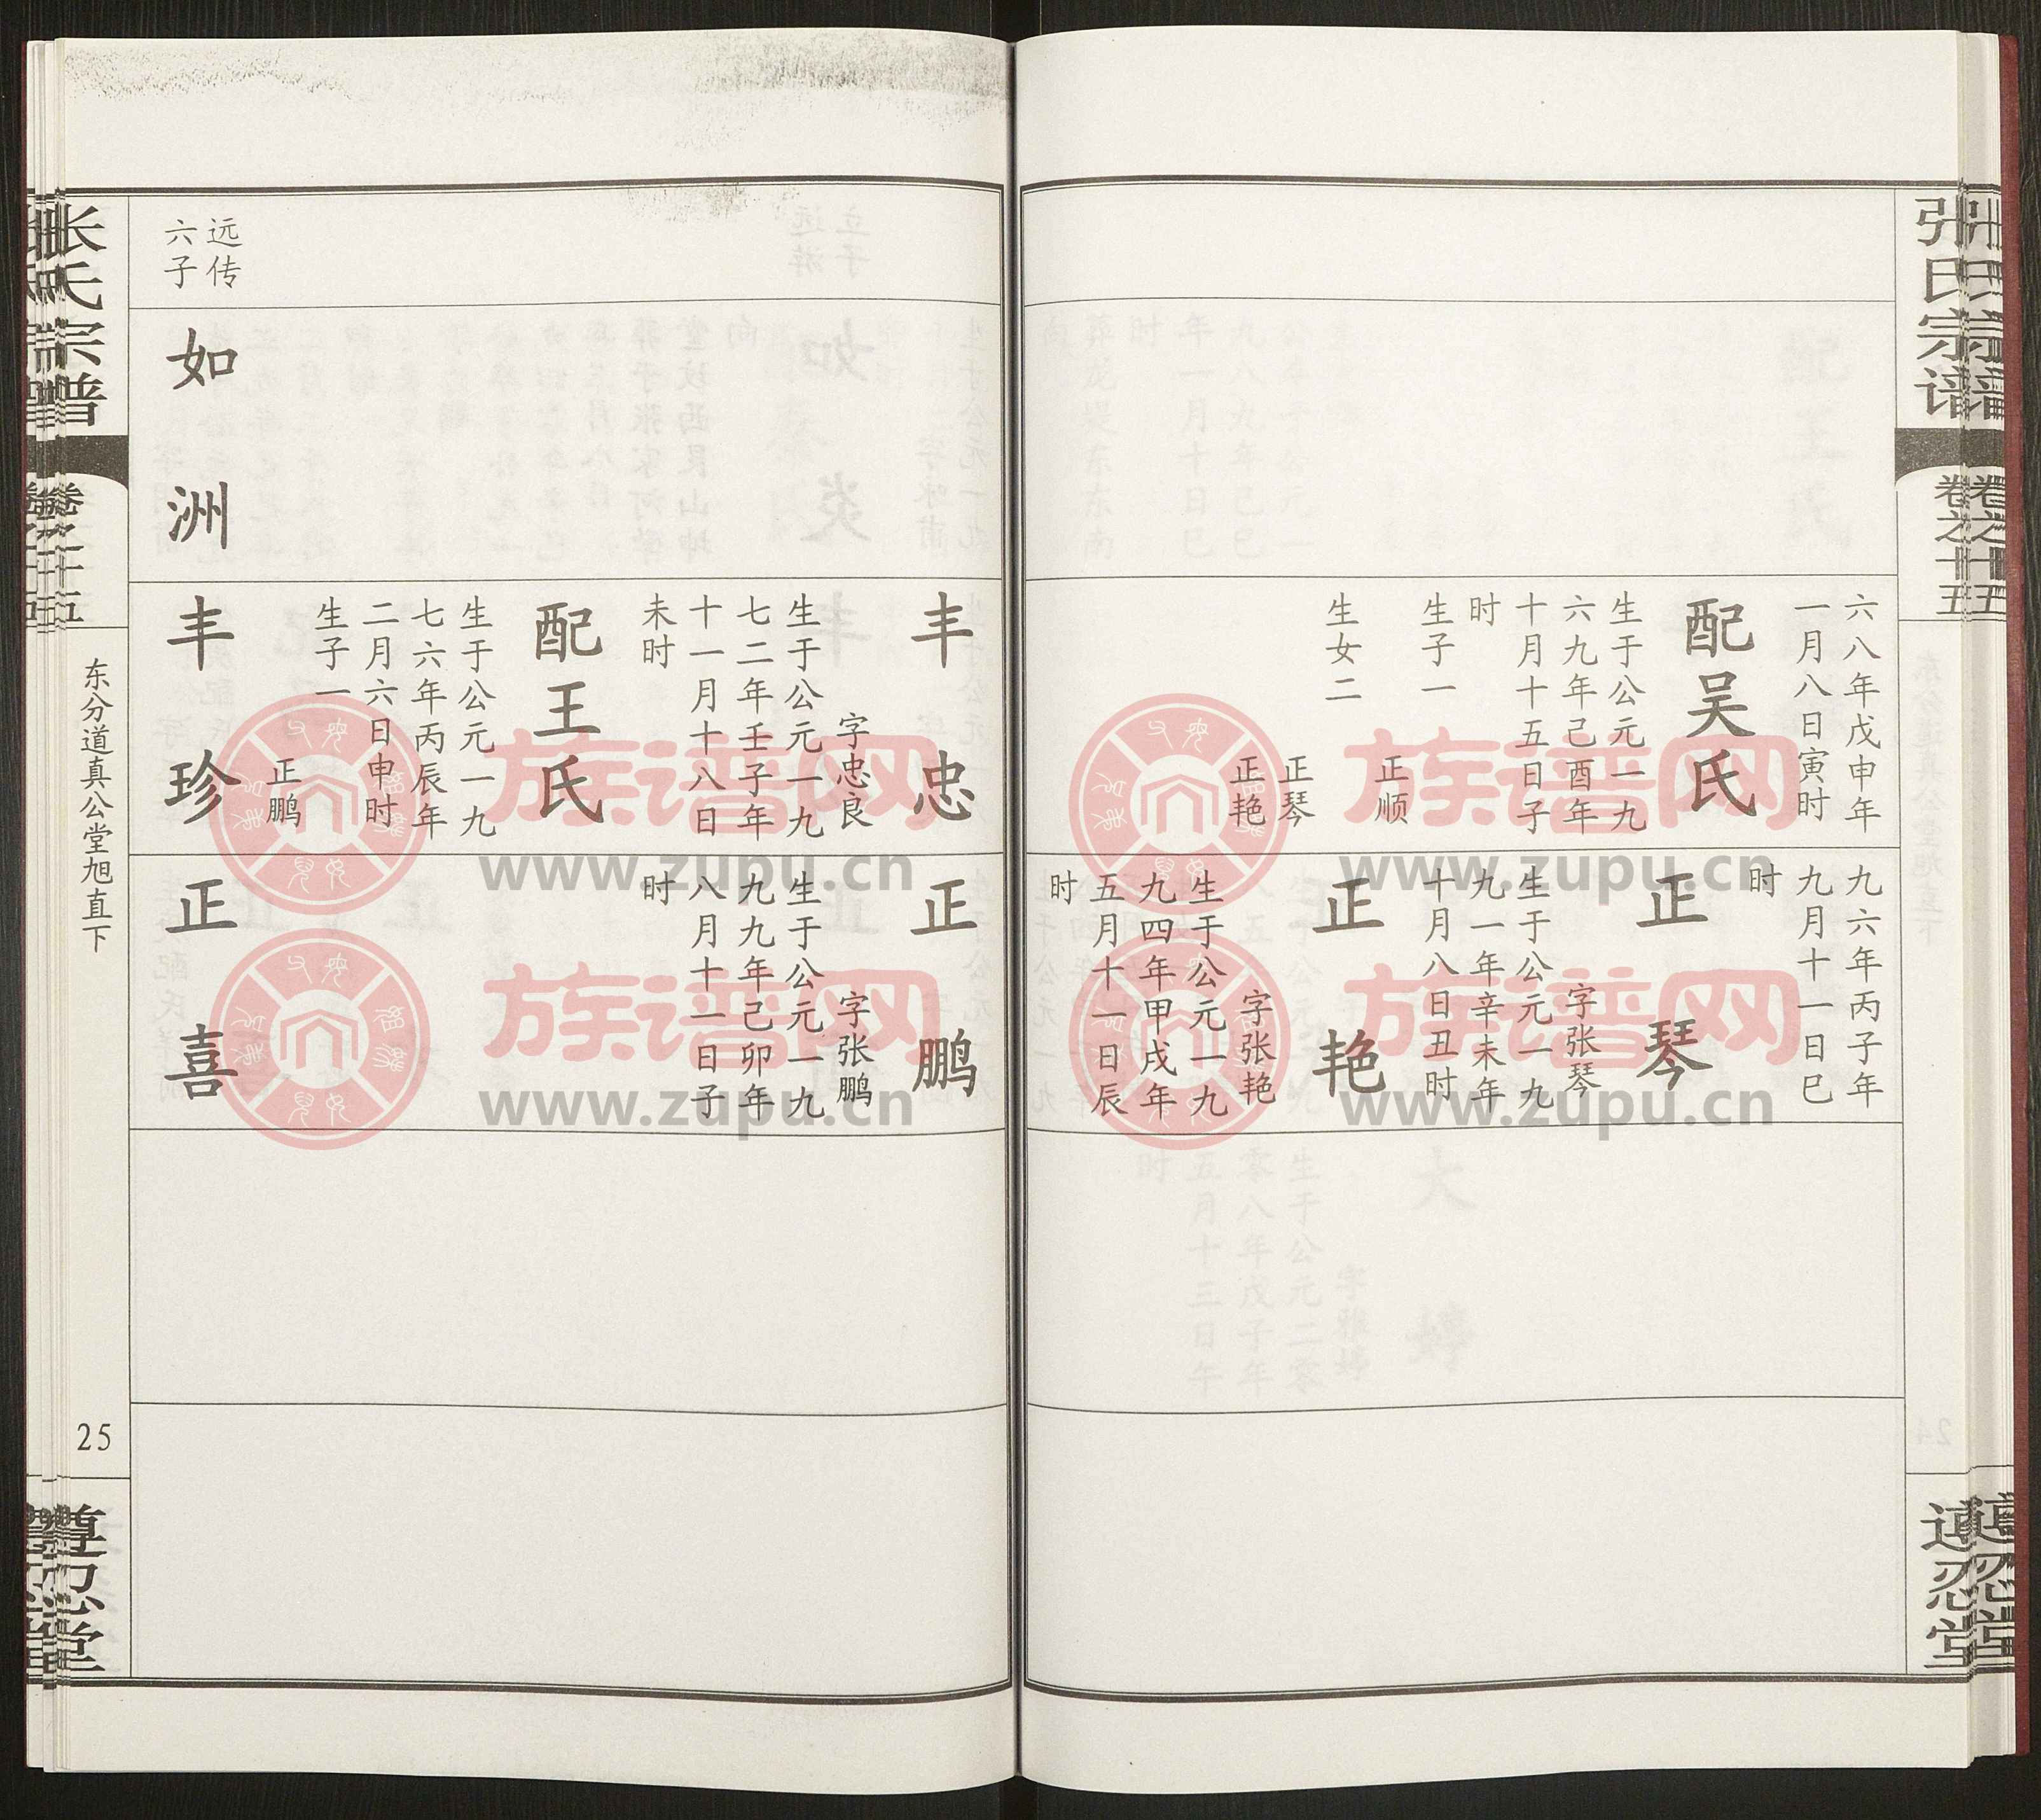 张氏宗谱
卷之十五
遵忍堂
六八年戊申年
一月八日寅时
配吴氏
生于公元一九
六九年己酉年
十月十五日子
时
生子一
正顺
生女二
正琴
正艳
九六年丙子年
九月十一日巳
时
正琴
字张琴
生于公元一九
九一年辛未年
十月八日丑时
正艳
字张艳
生于公元一九
九四年甲戌年
五月十一日辰
时
远传
六子
如洲
丰忠
字忠良
生于公元一九
七二年壬子年
十一月十八日
未时
配王氏
生于公元一九
七六年丙辰年
二月六日申时
生子一
正鹏
丰珍
正鹏
字张鹏
生于公元一九
九九年己卯年
八月十一日子
时
正喜
张氏宗谱
卷之十五
东分道真公堂旭直下
25
遵忍堂
族谱网
www.zupu.cn
族谱网
www.zupu.cn
族谱网
www.zupu.cn
族谱网
www.zupu.cn